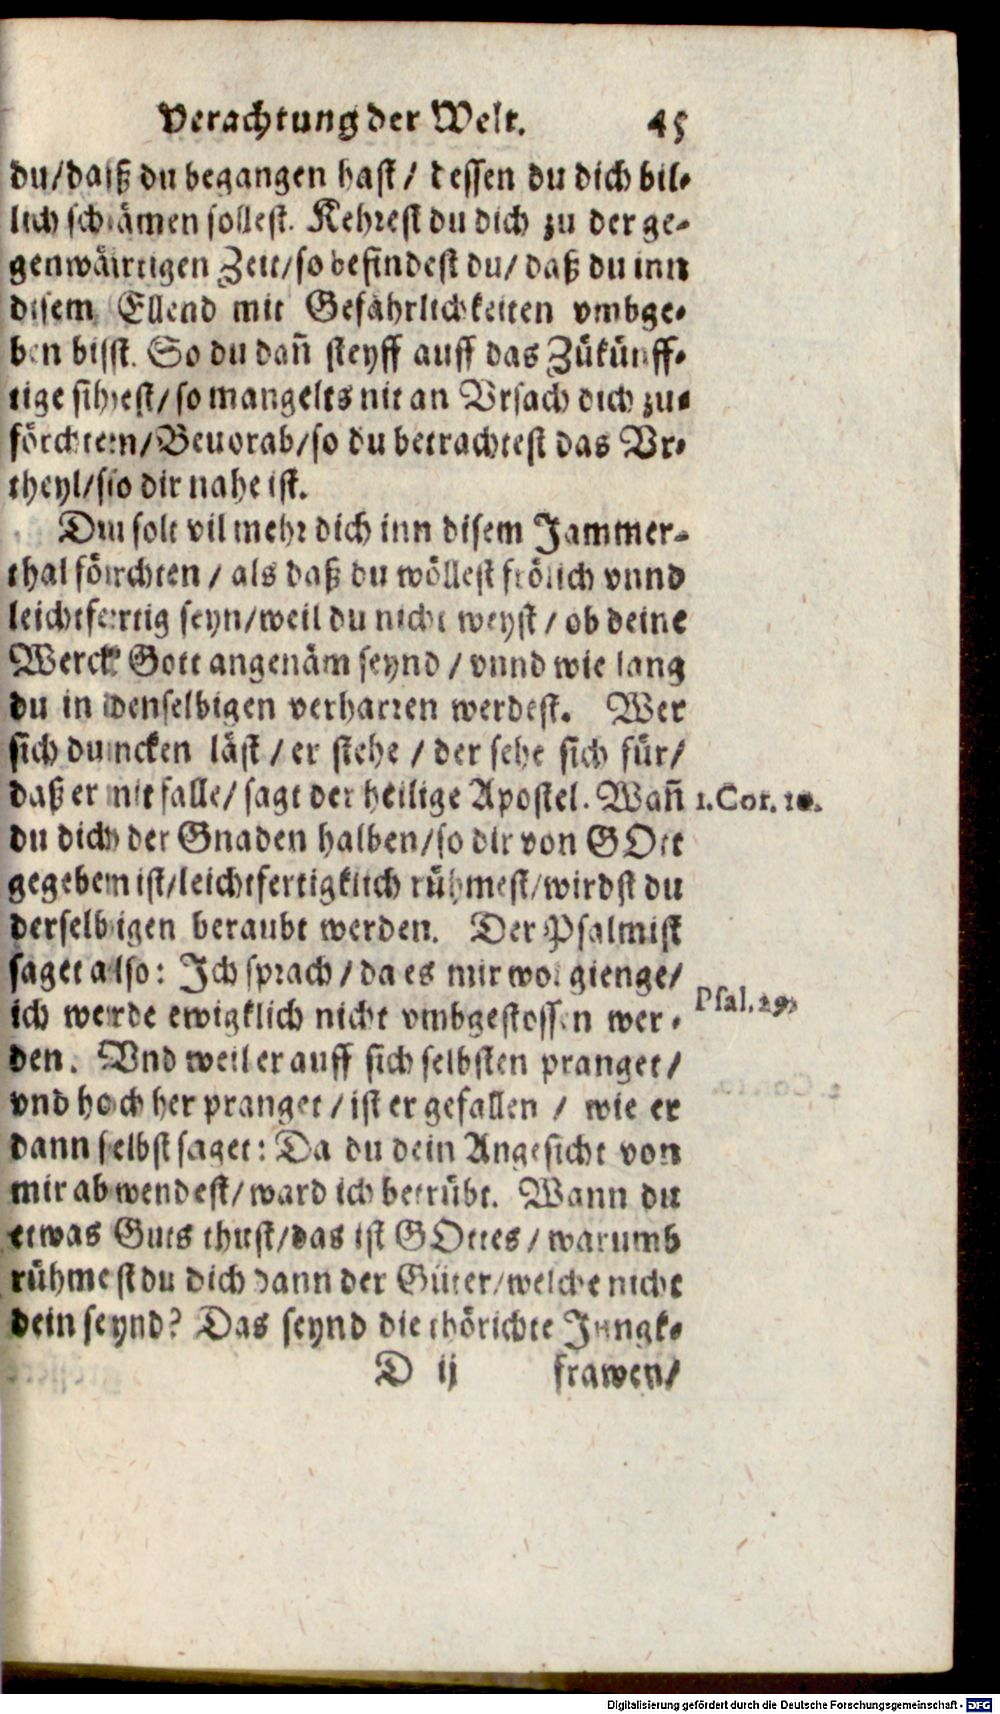 Verachtung der Welt. 45
du/ daß du begangen hast/ dessen du dich bil-
lich schämen sollest. Kehrest du dich zu der ge-
genwärtigen Zeit/ so befindest du/ daß du inn
disem Ellend mit Gefährlichkeiten vmbge-
ben bisst. So du dañ steyff auff das Zükünff-
tige sihest/ so mangelts nit an Vrsach dich zu-
förchten/ Beuorab/ so du betrachtest das Vr-
theyl/ so dir nahe ist.
Du solt vil mehr dich inn disem Jammer-
thal förchten/ als daß du wöllest frölich vnnd
leichtfertig seyn/ weil du nicht weyst/ ob deine
Werck Gott angenäm seynd/ vnnd wie lang
du in denselbigen verharren werdest. Wer
sich duncken läst/ er stehe/ der sehe sich für/
daß er nit falle/ sagt der heilige Apostel. Wañ 1. Cor. 10.
du dich der Gnaden halben/ so dir von GOtt
gegeben ist/ leichtfertigklich rühmest/ wirdst du
derselbigen beraubt werden. Der Psalmist
saget also: Ich sprach/ da es mir wol gienge/
ich werde ewigklich nicht vmbgestossen wer- Psal. 29.
den. Vnd weil er auff sich selbsten pranget/
vnd hoch her pranget/ ist er gefallen/ wie er
dann selbst saget: Da du dein Angesicht von
mir abwendest/ ward ich betrübt. Wann du
etwas Guts thust/ das ist GOttes/ warumb
rühmest du dich dann der Güter/ welche nicht
dein seynd? Das seynd die thörichte Jungk-
D ij frawen/
Digitalisierung gefördert durch die Deutsche Forschungsgemeinschaft - DFG